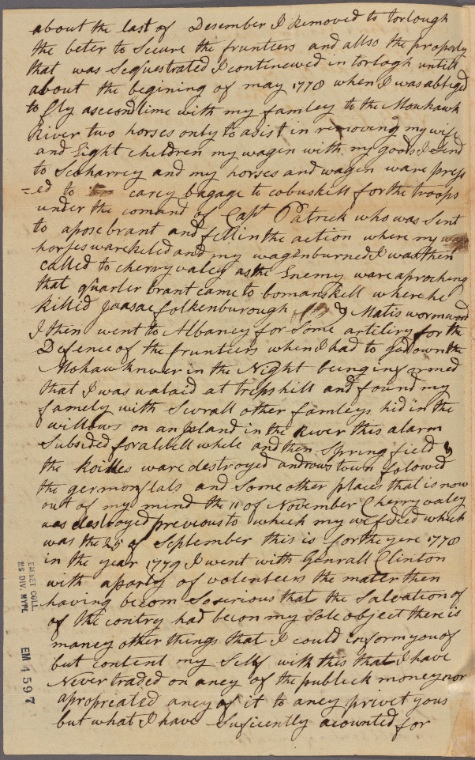 about the last of Desember I Removed to torlough
the beter to Secure the frunteers and allso the property
that was Sequestrated I contenewed in torlogh untill
about the begining of may 1778 when I was abliged
to fly asecond time with my famley to the Mouhawk
River two horses only to asist in removeing my wife
and Eight children my wagen with my goods I Send
to Scoharrey and my horses and wagen ware press
=ed to carey bagage to cobuskill for the troops
under the comand of Capt Patrick who was Sent
to apose brant and fell in the action where my
horses ware keled and my wagen burned I was then
called to cherry valey as the Enemy ware aproching
that quarter brant came to bomanskell where he
killed and Matis wormwood
I then went to Albaney for Some artilery for the
Defence of the frunteers when I had to go down the
Mohawk rever in the Night being informed
that I was walaed at tripshill and found my
famely with Severall other famleys hid in the
willows on an Island in the River this alarm
Subsided for a letell while and then Spring field &
the ware destroyed androws town folowed
the germon flats and Some other places that is now
out of my mind the 11 of November Cherry valey
was destroyed previous to which my wefe died which
was the 25 of September this is for the yere 1778
in the year 1779 I went with Generall Clinton
with a party of volenteers the mater then
haveing becom So serious that the Salvation of
of the contry had becom my Sole object there is
maney other things that I could inform you of
but content my Self with this that I have
Never traded on aney of the publeck money nor
apropreated aney of it to aney privet yous
but what I have Suficently acounted for
EMMET COLL.
MS DIV. NYPL
EM 1597